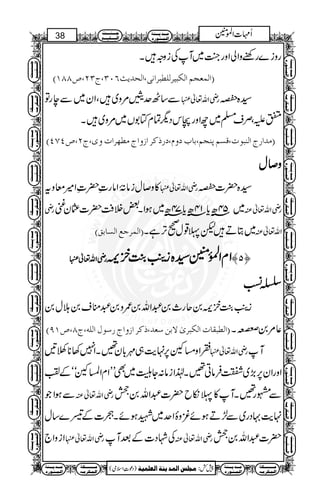 38
اُمہات المؤمنین
روزے رکھنے والی اور جنت میں آپ کی زوجہ ہیں۔
(المعجم الکبیر للطبرانی،الحدیث۳۰۶،ج۲۳،ص۱۸۸)
سیدہ حفصہ رضی اللہ تعالٰی عنہا سے ساٹھ حدیثیں مروی ہیں، ان میں سے چار تو
متفق علیہ، صرف مسلم میں چھ اور پچاس دیگر تمام کتابوں میں مروی ہیں۔
(مدارج النبوت،قسم پنجم،باب دوم،درذکر ازواج مطہرات وی،ج۲،ص۴۷۴)
وصال
سیدہ حضرت حفصہ رضی اللہ تعالٰی عنہا کا وصال زمانۂ امارتِ حضرت امیر معاویہ
رضی اللہ تعالٰی عنہ میں ۴۵ھ یا ۴۱ھ یا ۴۷ھ میں ہوا۔ بعض خلافت حضرت عثمان غنی رضی
اللہ تعالٰی عنہ میں بتاتے ہیں لیکن پہلا قول صحیح تر ہے۔ (المرجع السابق)
﴿۵﴾ اُم المؤمنین سیدہ زینب بنت خزیمہ رضی اللہ تعالٰی عنہا
سلسلہ نسب
زینب بنت خزیمہ بن حارث بن عبداللہ بن عمرو بن عبد مناف بن ہلال بن
عامر بن صعصعہ۔ (الطبقات الکبریٰ لابن سعد،ذکر ازواج رسول اللہ،ج۸،ص۹۱)
آپ رضی اللہ تعالٰی عنہا فقرا و مساکین پر نہایت ہی مہربان تھیں۔ انہیں کھانا کھلاتیں
اور ان پر بڑی شفقت فرماتی تھیں۔ لہذا زمانہ جاہلیت میں بھی ”ام المساکین“ کے لقب
سے مشہور تھیں۔ آپ کا پہلا نکاح حضرت عبداللہ بن جحش رضی اللہ تعالٰی عنہ سے ہوا جو
نہایت بہادری سے لڑتے ہوئے غزوۂ احد میں شہید ہوئے۔ ہجرت کے تیسرے سال
حضرت عبداللہ بن جحش رضی اللہ تعالٰی عنہ کی شہادت کے بعد آپ رضی اللہ تعالٰی عنہا ازواج
پیش کش: مجلس المدینة العلمیة (دعوتِ اسلامی)